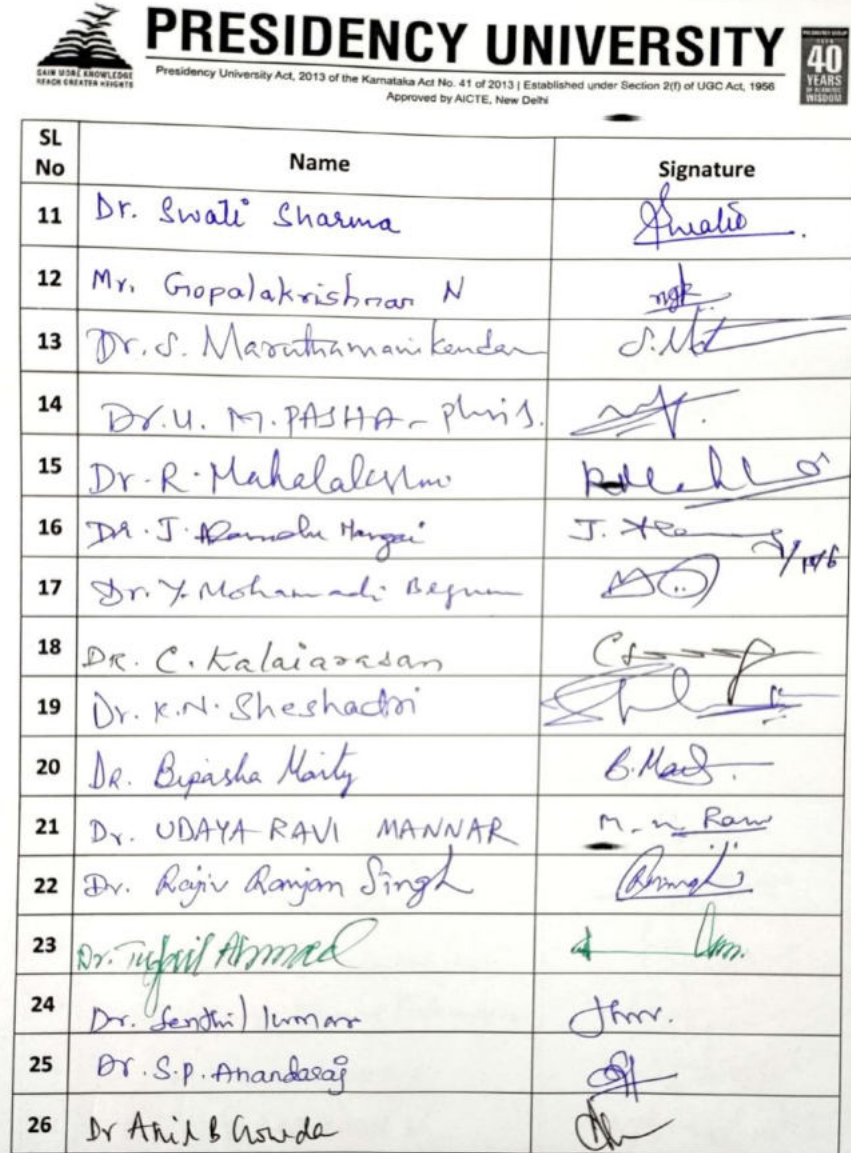 GAIN MORE KNOWLEDGE
REACH GREATER HEIGHTS
PRESIDENCY UNIVERSITY
Presidency University Act, 2013 of the Karnataka Act No. 41 of 2013 | Established under Section 2(f) of UGC Act, 1956
Approved by AICTE, New Delhi
40
YEARS
OF ACADEMIC
WISDOM
SL No Name Signature
11 Dr. Swati Sharma Swati
12 Mr. Gopalakrishnan N ngk
13 Dr. S. Maruthamanikandan S.
14 Dr. U. M. PASHA
15 Dr. R. Mahalakshmi
16 DR. J. J.
17 Dr. Y. Mohamadi Begum
18 DR. C. Kalaiarasan
19 Dr. K.N. Sheshadri
20 DR. Bipasha Maity B.
21 Dr. UDAYA RAVI MANNAR M. n. Ravi
22 Dr. Rajiv Ranjan Singh
23 Dr. Tufail Ahmad
24 Dr. Senthil kumar
25 Dr. S.P. Anandaraj
26 Dr Anil B Gowda